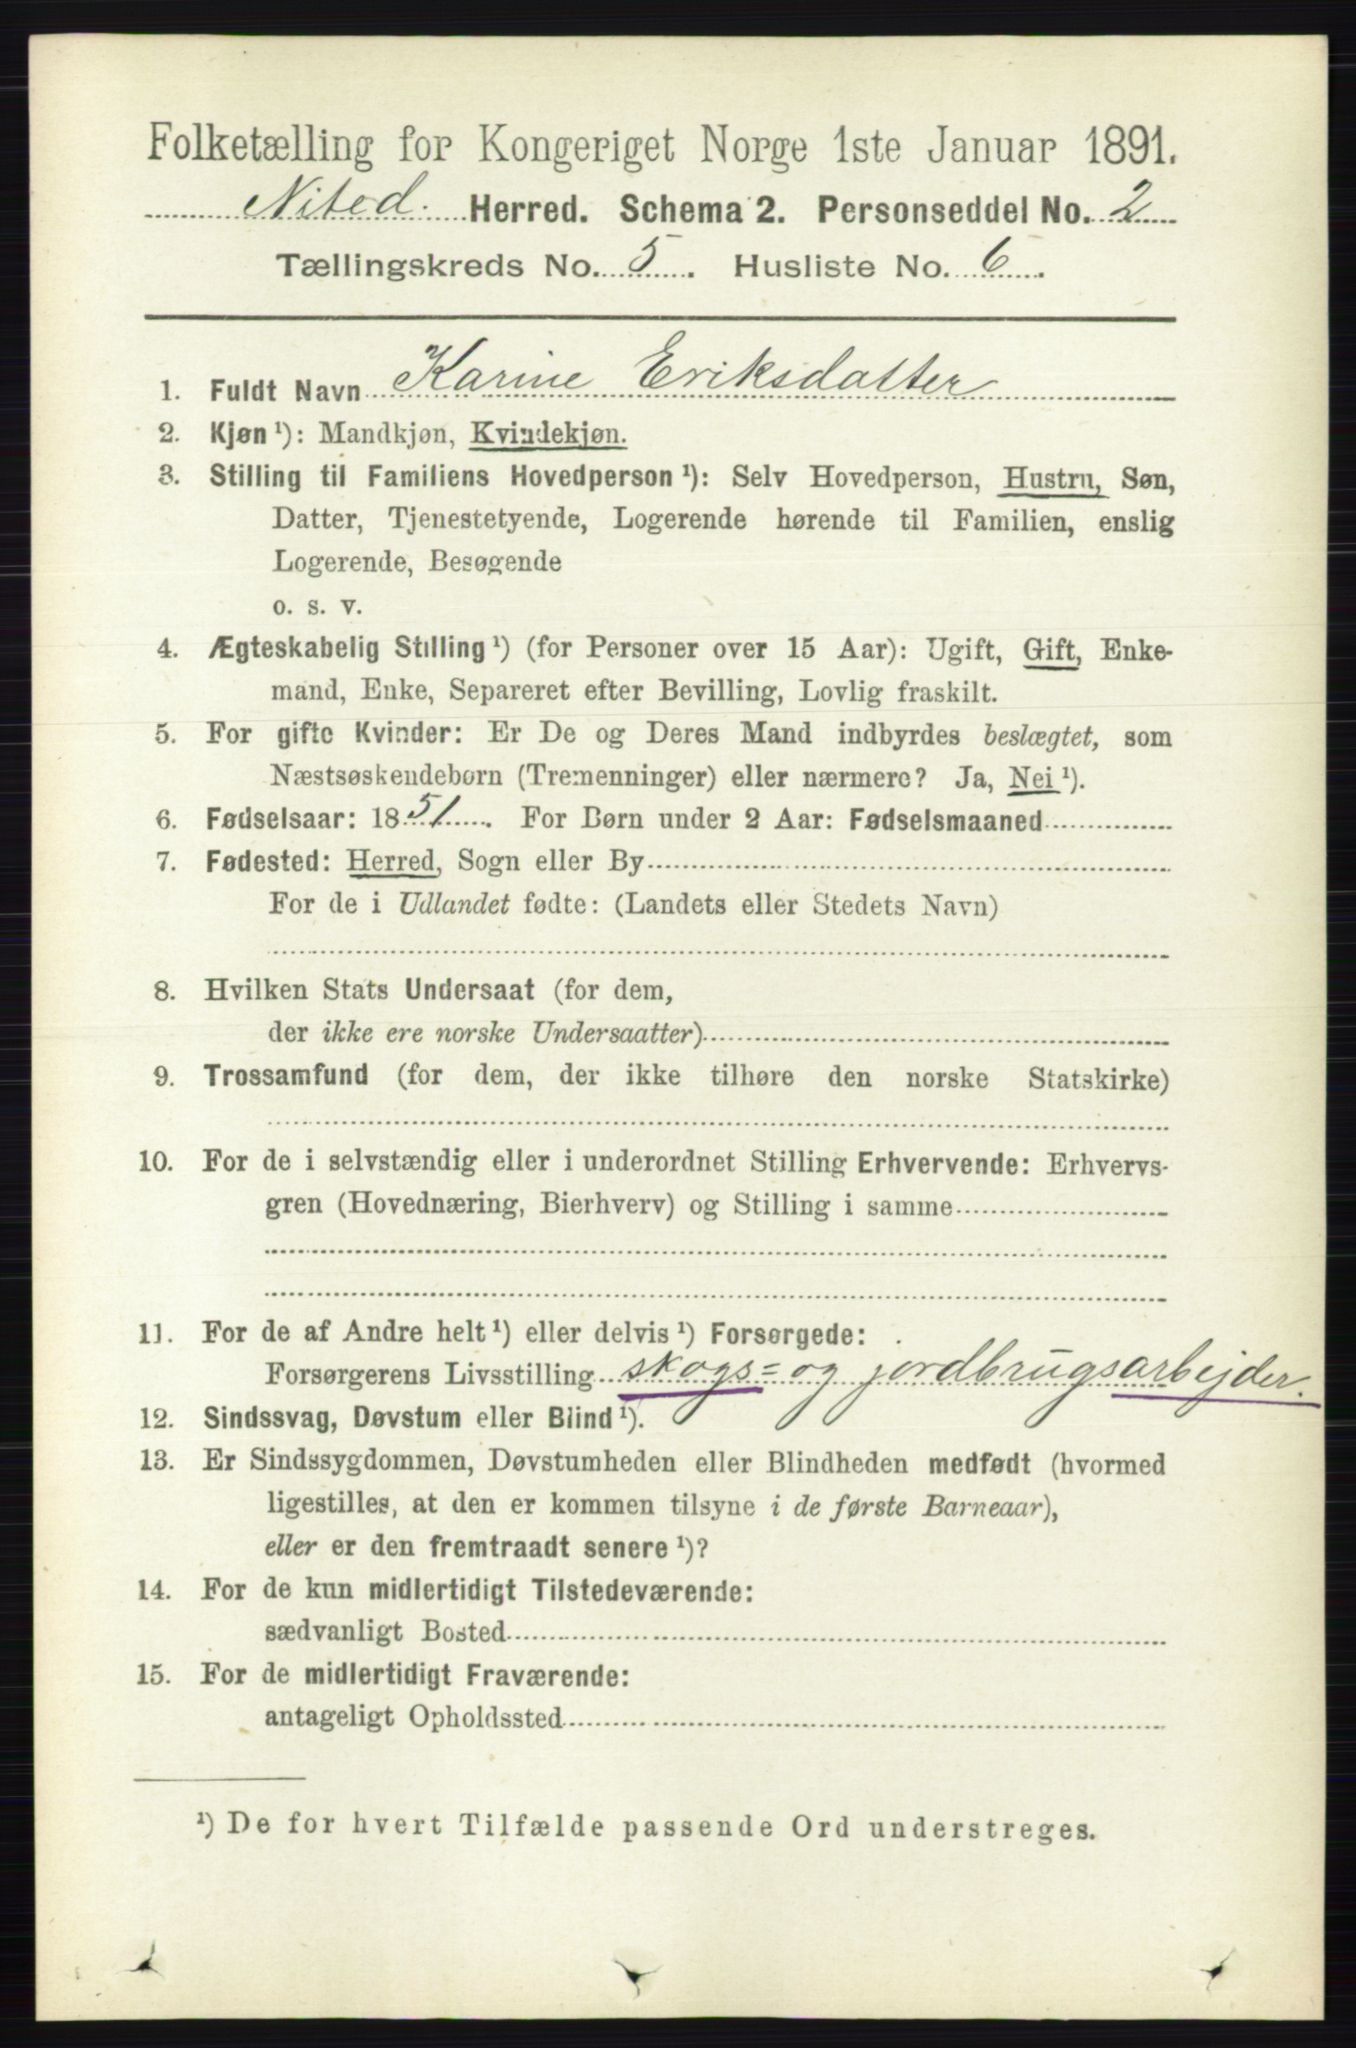 Folketælling for Kongeriget Norge 1ste Januar 1891.
Nited. Herred. Schema 2. Personseddel No. 2
Tællingskreds No. 5. Husliste No. 6.
1. Fuldt Navn Karine Eriksdatter
2. Kjøn ¹): Mandkjøn, Kvindekjøn.
3. Stilling til Familiens Hovedperson ¹): Selv Hovedperson, Hustru, Søn,
Datter, Tjenestetyende, Logerende hørende til Familien, enslig
Logerende, Besøgende
o. s. v.
4. Ægteskabelig Stilling ¹) (for Personer over 15 Aar): Ugift, Gift, Enke-
mand, Enke, Separeret efter Bevilling, Lovlig fraskilt.
5. For gifte Kvinder: Er De og Deres Mand indbyrdes beslægtet, som
Næstsøskendebørn (Tremenninger) eller nærmere? Ja, Nei ¹).
6. Fødselsaar: 1851. For Børn under 2 Aar: Fødselsmaaned
7. Fødested: Herred, Sogn eller By
For de i Udlandet fødte: (Landets eller Stedets Navn)
8. Hvilken Stats Undersaat (for dem,
der ikke ere norske Undersaatter)
9. Trossamfund (for dem, der ikke tilhøre den norske Statskirke)
10. For de i selvstændig eller i underordnet Stilling Erhvervende: Erhvervs-
gren (Hovednæring, Bierhverv) og Stilling i samme
11. For de af Andre helt ¹) eller delvis ¹) Forsørgede:
Forsørgerens Livsstilling skogs= og jordbrugsarbejder.
12. Sindssvag, Døvstum eller Blind ¹).
13. Er Sindssygdommen, Døvstumheden eller Blindheden medfødt (hvormed
ligestilles, at den er kommen tilsyne i de første Barneaar),
eller er den fremtraadt senere ¹)?
14. For de kun midlertidigt Tilstedeværende:
sædvanligt Bosted
15. For de midlertidigt Fraværende:
antageligt Opholdssted
¹) De for hvert Tilfælde passende Ord understreges.